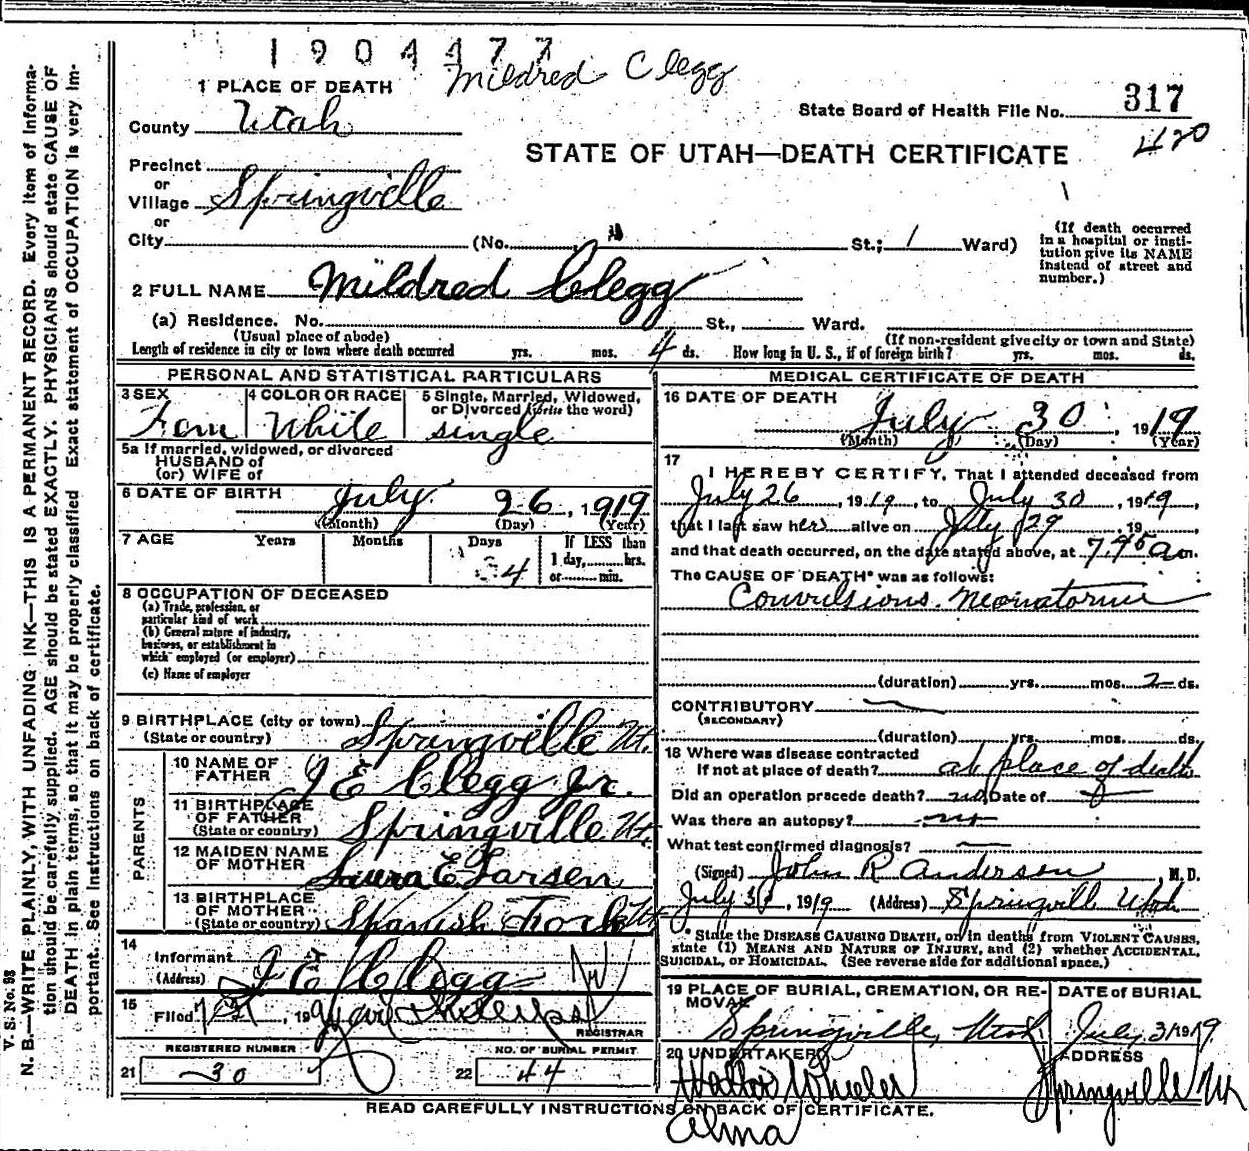 1904477
Mildred Clegg
1 PLACE OF DEATH
State Board of Health File No. 317
County Utah
420
STATE OF UTAH—DEATH CERTIFICATE
Precinct
or
Village Springville
or
City (No. St.; 1 Ward)
(If death occurred
in a hospital or insti-
tution give its NAME
instead of street and
number.)
2 FULL NAME Mildred Clegg
(a) Residence. No. St., Ward.
(Usual place of abode) (If non-resident give city or town and State)
Length of residence in city or town where death occurred yrs. mos. 4 ds. How long in U. S., if of foreign birth? yrs. mos. ds.
PERSONAL AND STATISTICAL PARTICULARS
3 SEX Fem
4 COLOR OR RACE White
5 Single, Married, Widowed,
or Divorced (write the word)
single
5a If married, widowed, or divorced
HUSBAND of
(or) WIFE of
6 DATE OF BIRTH July 26, 1919
(Month) (Day) (Year)
7 AGE Years Months Days If LESS than
4 1 day, hrs.
or min.
8 OCCUPATION OF DECEASED
(a) Trade, profession, or
particular kind of work
(b) General nature of industry,
business, or establishment in
which employed (or employer)
(c) Name of employer
9 BIRTHPLACE (city or town)
(State or country) Springville Ut.
PARENTS
10 NAME OF
FATHER J E Clegg Jr.
11 BIRTHPLACE
OF FATHER
(State or country) Springville Ut
12 MAIDEN NAME
OF MOTHER Laura E Larsen
13 BIRTHPLACE
OF MOTHER
(State or country) Spanish Fork Ut
14
Informant J E Clegg
(Address)
15
Filed 7/31, 19
REGISTRAR
REGISTERED NUMBER
21 30
NO. OF BURIAL PERMIT
22 44
MEDICAL CERTIFICATE OF DEATH
16 DATE OF DEATH
July 30, 1919
(Month) (Day) (Year)
17
I HEREBY CERTIFY, That I attended deceased from
July 26, 1919, to July 30, 1919,
that I last saw her alive on July 29, 19
and that death occurred, on the date stated above, at 7.45 a m.
The CAUSE OF DEATH* was as follows:
Convulsions. Neonatorum
(duration) yrs. mos. 2 ds.
CONTRIBUTORY
(SECONDARY)
(duration) yrs. mos. ds.
18 Where was disease contracted
If not at place of death? at place of death
Did an operation precede death? no Date of
Was there an autopsy? no
What test confirmed diagnosis?
(Signed) John R Anderson, M. D.
July 30, 1919 (Address) Springville Utah
* State the DISEASE CAUSING DEATH, or in deaths from VIOLENT CAUSES,
state (1) MEANS AND NATURE OF INJURY, and (2) whether ACCIDENTAL,
SUICIDAL, or HOMICIDAL. (See reverse side for additional space.)
19 PLACE OF BURIAL, CREMATION, OR RE-
MOVAL
Springville, Utah
DATE of BURIAL
July 31 1919
20 UNDERTAKER
Wheeler
Alma
ADDRESS
Springville Ut
READ CAREFULLY INSTRUCTIONS ON BACK OF CERTIFICATE.
V. S. No. 98
N. B.—WRITE PLAINLY, WITH UNFADING INK—THIS IS A PERMANENT RECORD. Every item of informa-
tion should be carefully supplied. AGE should be stated EXACTLY. PHYSICIANS should state CAUSE OF
DEATH in plain terms, so that it may be properly classified Exact statement of OCCUPATION is very im-
portant. See Instructions on back of certificate.